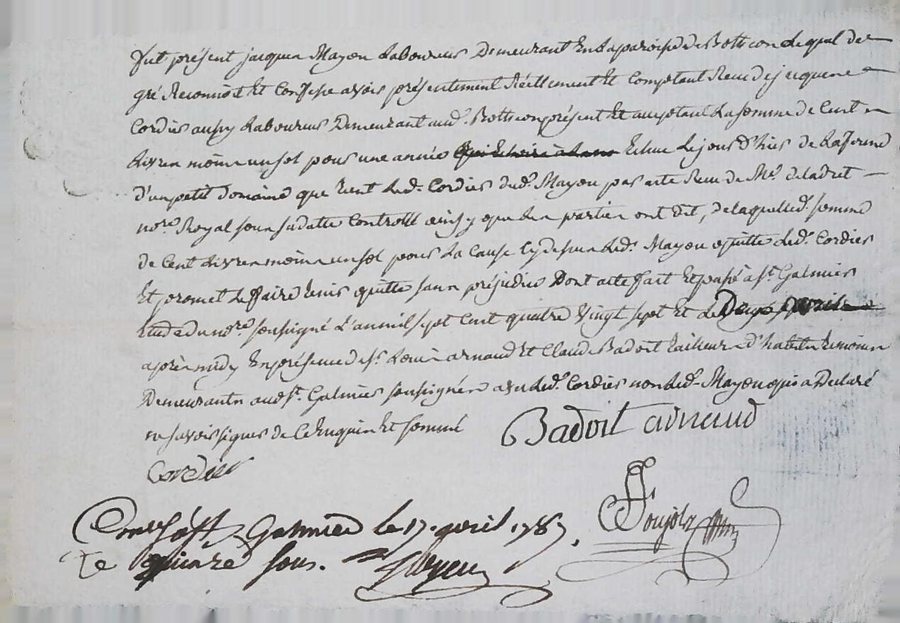 fut présent jacques Mayou Laboureur Demeurant En la paroisse de Botticon Lequel de
gré Reconnoit Et Confesse avoir présentement Réellement Et Comptant Receu de
Cordier aussy Laboureur Demeurant aud. Botticon présent Et acceptant La somme de Cent
Livres moins un sol pour une année Echue Le jour d'hier de La ferme
d'un petit Domaine que tient Led. Cordier dud. Mayou par acte Receu de Me.
nore. Royal sous sa datte Controllé ainsy que Les parties ont dit, de laquelled. somme
de Cent Livres moins un sol pour La Cause Cy dessus Led. Mayou quitte Led. Cordier
Et promet Le faire tenir quitte sans préjudice Dont acte fait Et passé a St. Galmier
Etude du nore. soussigné L'an mil sept Cent quatre Vingt sept Et Le avril
après midy En présence de Sr. Louis arnaud Et Claude Badoit tailleur d'habits témoins
Demeurants aud. St. Galmier soussignés avec Led. Cordier non Led. Mayou qui a Déclaré
ne savoir signer de ce Enquis Et sommé
Badoit arnaud
Cordier
Conlé à St. Galmier le 17. avril 1787.
Re quinze sous.